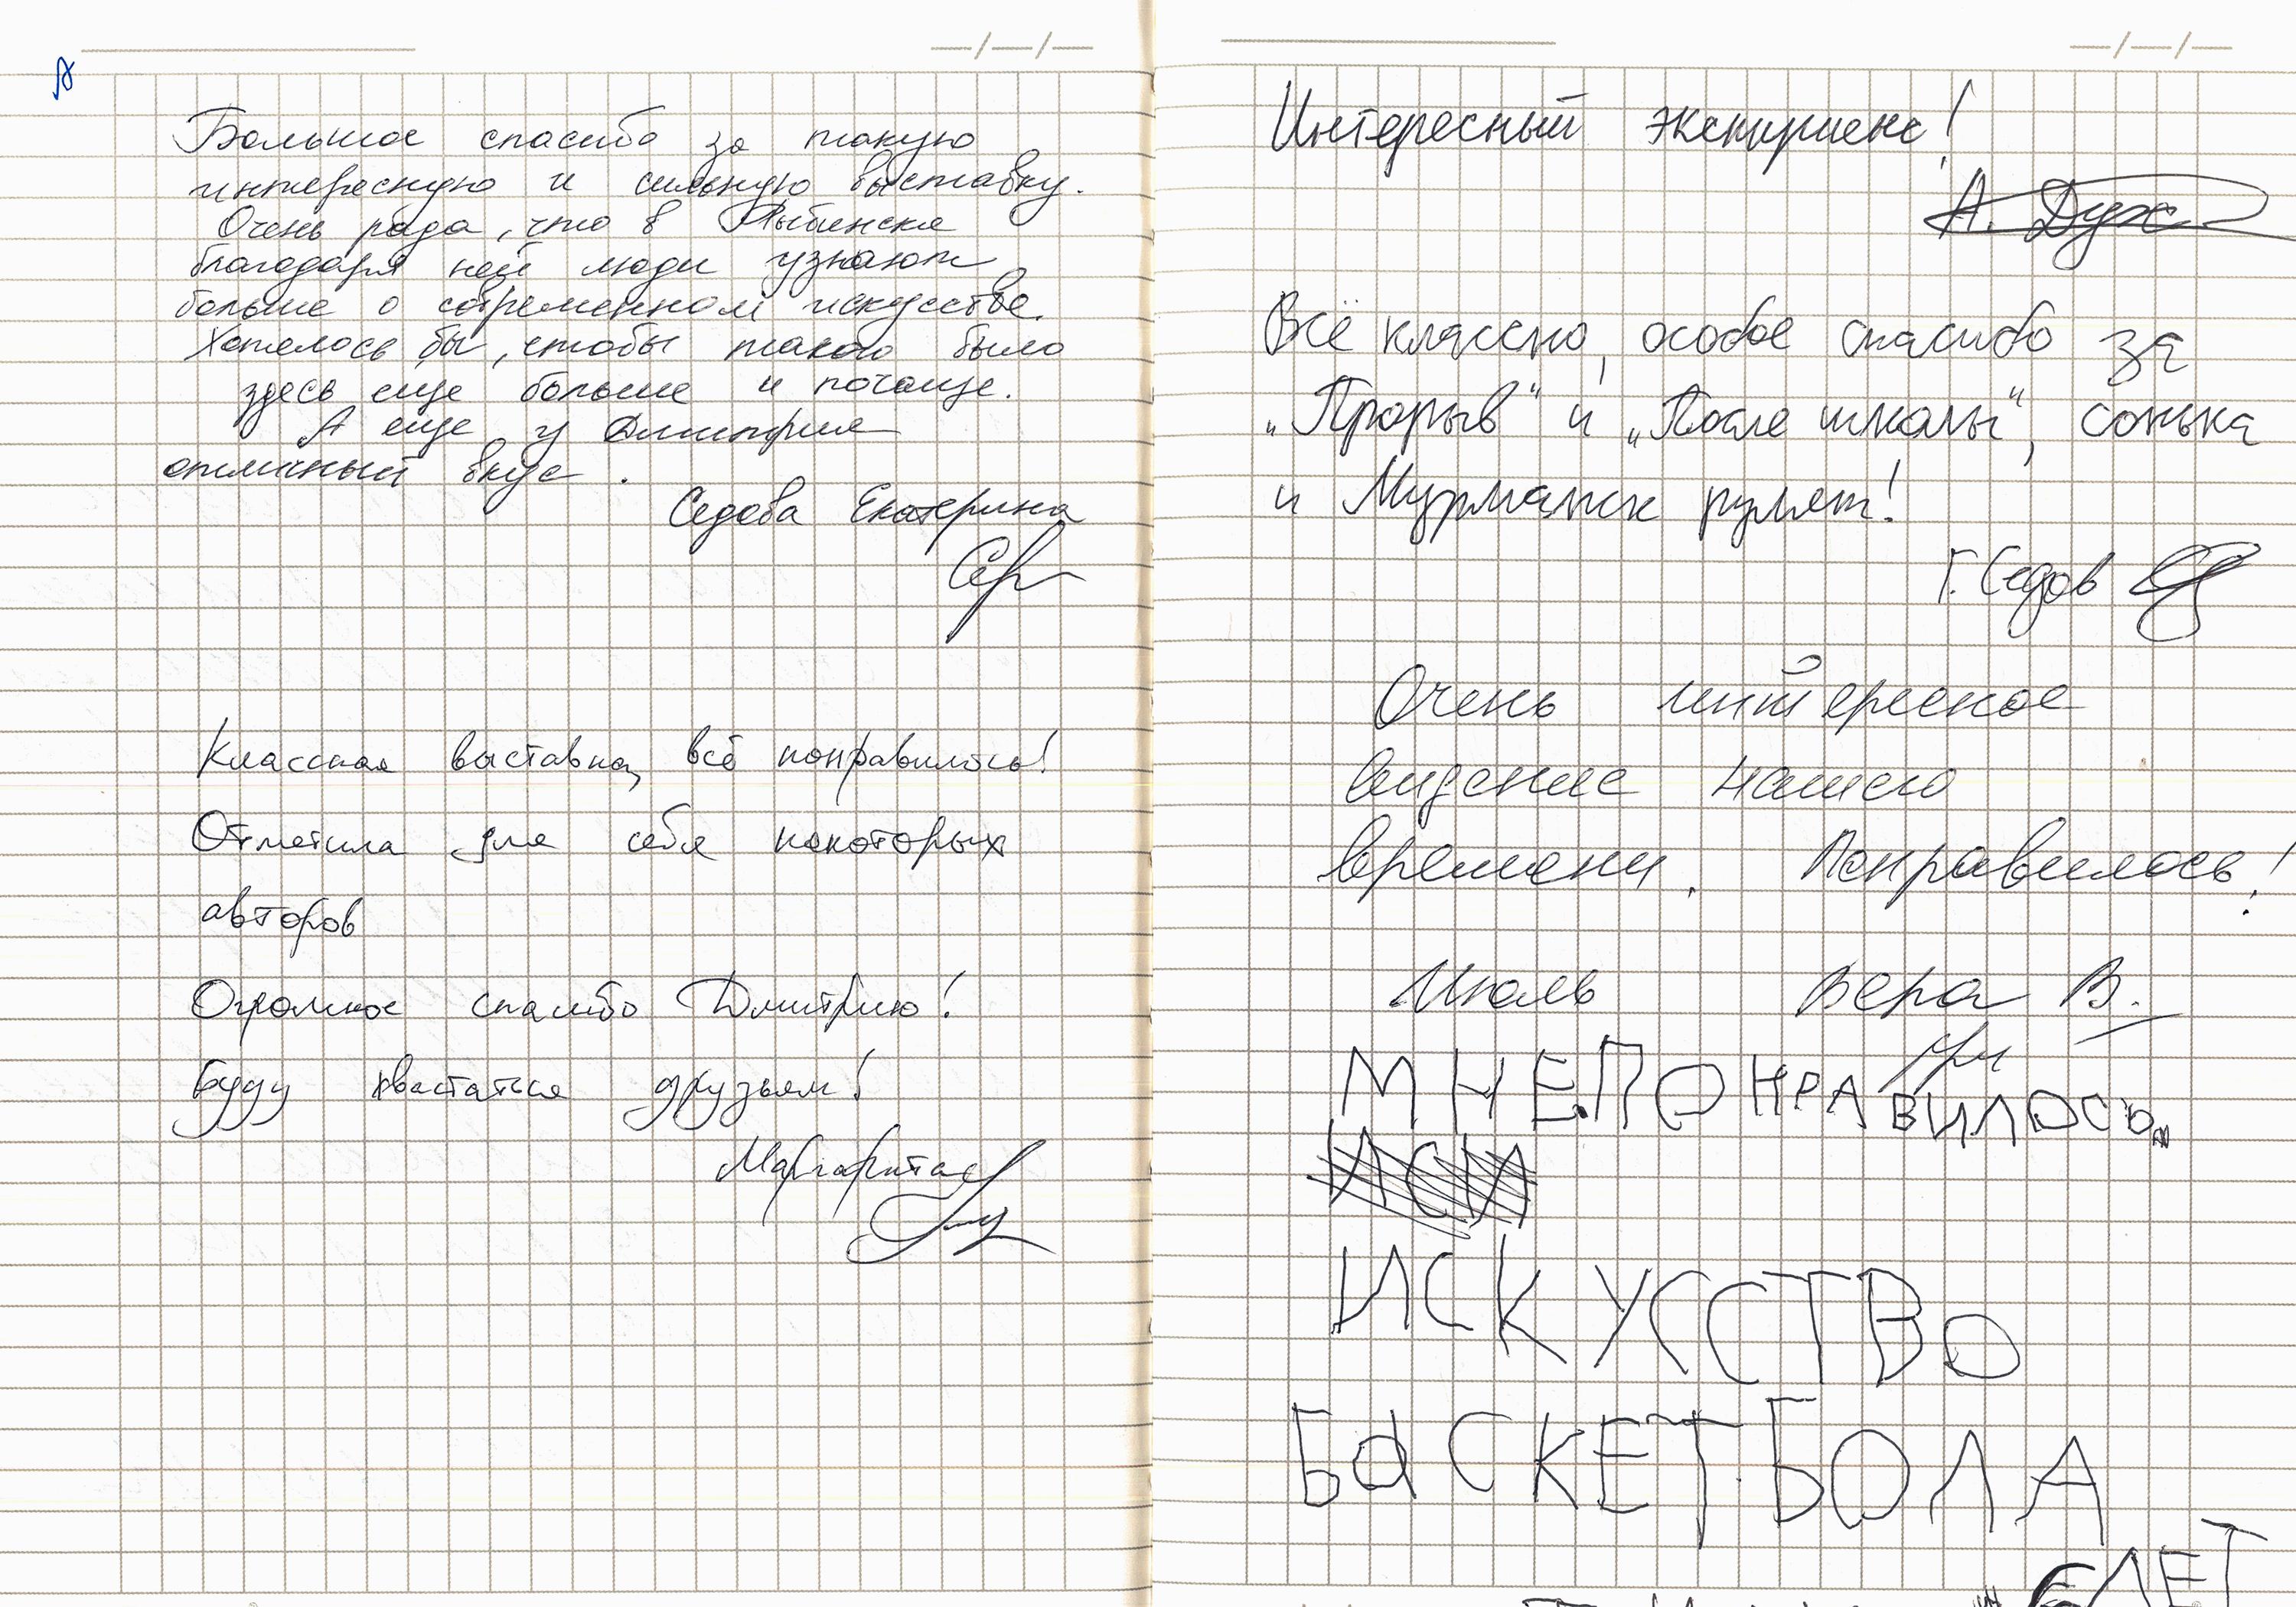 Большое спасибо за такую
интересную и сильную выставку.
Очень рада, что в Рыбинске
благодаря ней люди узнают
больше о современном искусстве.
Хотелось бы, чтобы такого было
здесь еще больше и почаще.
А еще у Дмитрия
отличный вкус.
Седова Екатерина
Классная выставка, всё понравилось!
Отметила для себя некоторых
авторов
Огромное спасибо Дмитрию!
Буду хвастаться друзьям!
Маргарита
Интересный экспириенс!
А. Дух
Всё классно, особое спасибо за
„Прорыв“ и „После школы“, сонька
и Мурманск рулят!
Г. Седов
Очень интересное
видение нашего
времени. Понравилось!
Июль Вера В.
МНЕ ПОНРАВИЛОСЬ
ИСКУССТВО
БАСКЕТБОЛА
6 ЛЕТ